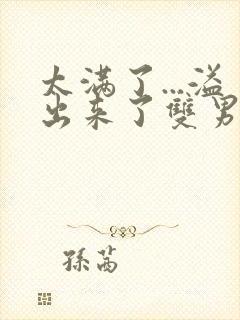 太满了...溢
出来了雙男
孫萵